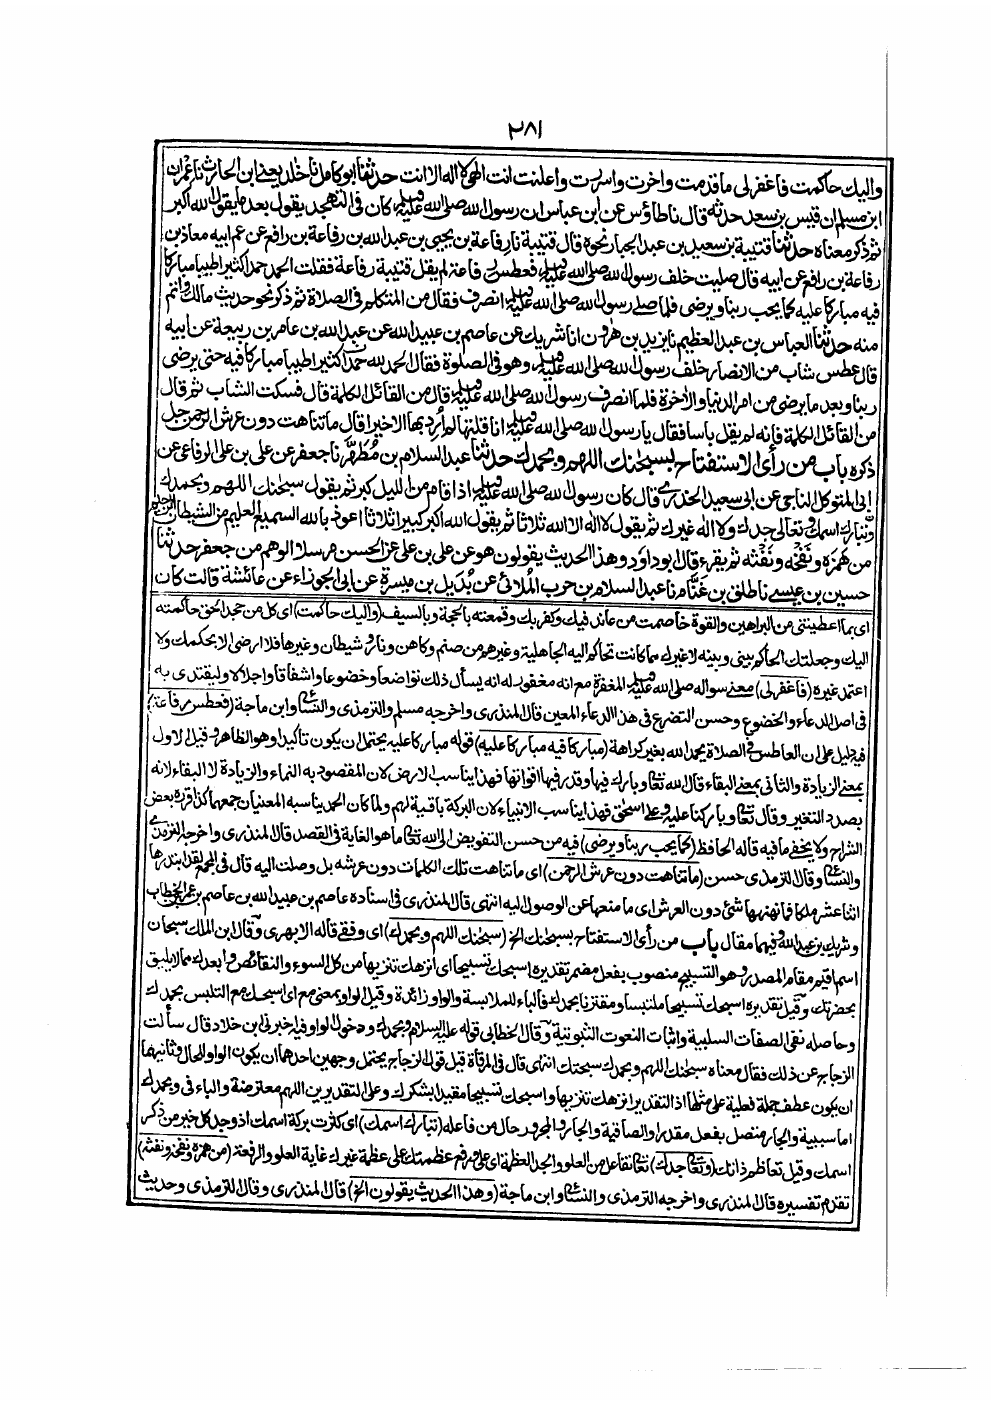 ٢٨١
واليك حاكمت فاغفرلى ماقدمت واخرت واسررت واعلنت انت الهى لااله الاانت حدثنا ابوكامل ناخلد يعنى ابن الحارث ناعمران
ابن مسلم ان قيس بن سعد حدثه قال ناطاؤس عن ابن عباس ان رسول الله صلى الله عليه وسلم كان فى التهجد يقول بعد مايقول الله اكبر
ثم ذكر معناه حدثنا قتيبة بن سعيد بن عبد الجبار نحوه قال قتيبة نارفاعة بن يحيى بن عبدالله بن رفاعة بن رافع عن عم ابيه معاذ بن
رفاعة بن رافع عن ابيه قال صليت خلف رسول الله صلى الله عليه وسلم فعطس رفاعة لم يقل قتيبة رفاعة فقلت الحمد لله حمدا كثيرا طيبا مباركا
فيه مباركا عليه كما يحب ربنا ويرضى فلما صلى رسول الله صلى الله عليه وسلم انصرف فقال من المتكلم فى الصلاة ثم ذكر نحو حديث مالك واتم
منه حدثنا العباس بن عبد العظيم نايزيد بن هارون اناشريك عن عاصم بن عبيد الله عن عبدالله بن عامر بن ربيعة عن ابيه
قال عطس شاب من الانصار خلف رسول الله صلى الله عليه وسلم وهو فى الصلوة فقال الحمد لله حمدا كثيرا طيبا مباركا فيه حتى يرضى
ربنا وبعد ما يرضى من امر الدنيا والأخرة فلما انصرف رسول الله صلى الله عليه وسلم قال من القائل الكلمة قال فسكت الشاب ثم قال
من القائل الكلمة فإنه لم يقل باسا فقال يا رسول الله صلى الله عليه وسلم انا قلتها لم أُرد بها الاخيرا قال ما تناهت دون عرش الرحمن جل
ذكره باب من رأى الاستفتاح بسبحنك اللهم وبحمدك حدثنا عبد السلام بن مُطَهَّر ناجعفر عن على بن على الرفاعى عن
ابى المتوكل الناجى عن ابى سعيد الخدرى قال كان رسول الله صلى الله عليه وسلم اذا قام من الليل كبر ثم يقول سبحنك اللهم وبحمدك
وتبارك اسمك وتعالى جدك ولا اله غيرك ثم يقول لا اله الا الله ثلاثا ثم يقول الله اكبر كبيرا ثلاثا اعوذ بالله السميع العليم من الشيطان الرجيم
من هَمْزه ونَفْخه ونَفْثه ثم يقرء قال ابوداود وهذا الحديث يقولون هو عن على بن على عن الحسن مرسلا الوهم من جعفر حدثنا
حسين بن عيسى ناطلق بن غَنّام ناعبد السلام بن حرب المُلائى عن بُدَيل بن ميسرة عن ابى الجوزاء عن عائشة قالت كان
اى بما اعطيتنى من البراهين والقوة خاصمت من عاند فيك وكفر بك وقمعته بالحجة وبالسيف (واليك حاكمت) اى كل من جحد الحق حاكمته
اليك وجعلتك الحاكم بينى وبينه لا غيرك مما كانت تحاكم اليه الجاهلية وغيرهم من صنم وكاهن ونار وشيطان وغيرها فلا ارضى الا بحكمك ولا
اعتمد غيره (فاغفرلى) معنى سواله صلى الله عليه وسلم المغفرة مع انه مغفور له انه يسأل ذلك تواضعا وخضوعا واشفاقا واجلالا وليقتدى به
فى اصل الدعاء والخضوع وحسن التضرع فى هذا الدعاء المعين قال المنذرى واخرجه مسلم والترمذى والنسائى وابن ماجة (فعطس رفاعة)
فيه دليل على ان العاطس فى الصلاة يحمد الله بغير كراهة (مباركا فيه مباركا عليه) قوله مباركا عليه يحتمل ان يكون تأكيدا وهو الظاهر وقيل الاول
بمعنى الزيادة والثانى بمعنى البقاء قال الله تعالى وبارك فيها وقدر فيها اقواتها فهذا يناسب الارض لان المقصود به النماء والزيادة لا البقاء لانه
بصدد التغير وقال تعالى وباركنا عليه وعلى اسحٰق فهذا يناسب الانبياء لان البركة باقية لهم ولما كان الحمد يناسبه المعنيان جمعهما كذا قرره بعض
الشراح ولا يخفى مافيه قاله الحافظ (كما يحب ربنا ويرضى) فيه من حسن التفويض الى الله تعالى ماهو الغاية فى القصد قال المنذرى واخرجه الترمذى
والنسائى وقال الترمذى حسن (ما تناهت دون عرش الرحمن) اى ما تناهت تلك الكلمات دون عرشه بل وصلت اليه قال فى المجمع لقد ابتدرها
اثنا عشر ملكا فما نهنهها شئ دون العرش اى ما منعها عن الوصول اليه انتهى قال المنذرى فى اسناده عاصم بن عبيد الله بن عاصم بن عمر الخطاب
وشريك بن عبدالله وفيهما مقال باب من رأى الاستفتاح بسبحنك الخ (سبحنك اللهم وبحمدك) اى وفقنى قاله الابهرى وقال ابن الملك سبحان
اسم اقيم مقام المصدر وهو التسبيح منصوب بفعل مضمر تقديره اسبحك تسبيحا اى انزهك تنزيها من كل السوء والنقائص وابعدك مما لا يليق
بحضرتك وقيل تقديره اسبحك تسبيحا ملتبسا ومقترنا بحمدك فالباء للملابسة والواو زائدة وقيل الواو بمعنى مع اى اسبحك مع التلبس بحمدك
وحاصله نفى الصفات السلبية واثبات النعوت الثبوتية وقال الخطابى قوله عليه السلام وبحمدك ودخول الواو فيه اخبرنى ابن خلاد قال سألت
الزجاج عن ذلك فقال معناه سبحنك اللهم وبحمدك سبحتك انتهى قال فى المرقاة قيل قول الزجاج يحتمل وجهين احدهما ان يكون الواو للحال وثانيهما
ان يكون عطف جملة فعلية على مثلها اذ التقدير انزهك تنزيها واسبحك تسبيحا مقيدا بشكرك وعلى التقديرين اللهم معترضة والباء فى وبحمدك
اما سببية والجار متصل بفعل مقدر او الصاقية والجار والمجرور حال من فاعله (تبارك اسمك) اى كثرت بركة اسمك اذ وجد كل خير من ذكر
اسمك وقيل تعاظم ذاتك (وتعالى جدك) تعالى تفاعل من العلو والجد العظمة اى علا ورفع عظمتك على عظمة غيرك غاية العلو والرفعة (من همزه ونفخه ونفثه)
تقدم تفسيره قال المنذرى واخرجه الترمذى والنسائى وابن ماجة (وهذا الحديث يقولون الخ) قال المنذرى وقال الترمذى وحديث